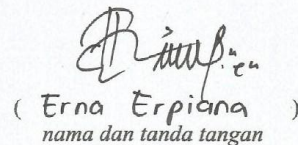 ( Erna Erpiana )
nama dan tanda tangan